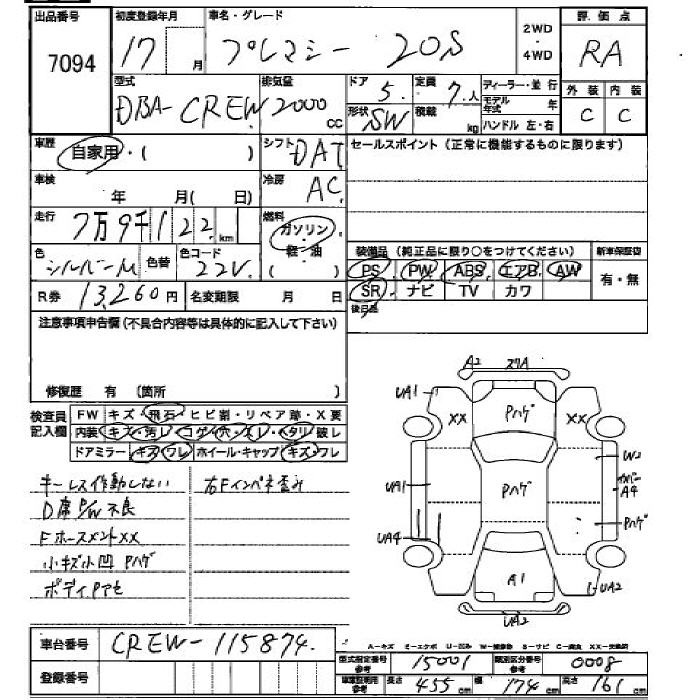 出品番号 初度登録年月 車名・グレード 評価点
7094 17 月 プレマシー 20S 2WD ・ 4WD RA
型式 排気量 ドア 定員 ディーラー・並行 外装 内装
DBA-CREW 2000 cc 5. 7人 モデル年式 年 C C
形状 SW 積載 kg ハンドル 左・右
車歴 自家用・( ) シフト DAT セールスポイント(正常に機能するものに限ります)
車検 年 月( 日) 冷房 AC
走行 7万9千122 km 燃料 ガソリン・軽・油 ( )
色 シルバーM 色替 色コード 22V. 装備品(純正品に限り○をつけてください) 新車保証書
PS PW ABS エアB AW 有・無
R券 13,260円 名変期限 月 日 SR ナビ TV カワ
注意事項申告欄(不具合内容等は具体的に記入して下さい) 後日品
修復歴 有 〔箇所 〕
検査員記入欄 FW キズ・飛石・ヒビ割・リペア跡・X要
内装 キズ・汚レ・コゲ・穴・スレ・ヘタリ・破レ
ドアミラー キズ・ワレ ホイール・キャップ キズ・ワレ
キーレス作動しない 右Fインパネ歪み
D席P/W不良
FホースメントXX
小キズ小凹 Pハゲ
ボディPアセ
A2 スワA
UA1 XX Pハゲ XX
W2
UA1 Pハゲ A4
UA4 Pハゲ
A1 UA2
UA2
車台番号 CREW-115874.
A-キズ E-エクボ U-凹み W-補修跡 S-サビ C-腐食 XX-交換済
型式指定番号 参考 15001 類別区分番号 参考 0008
登録番号 車庫証明用 参考 長さ 455 cm 幅 174 cm 高さ 161 cm